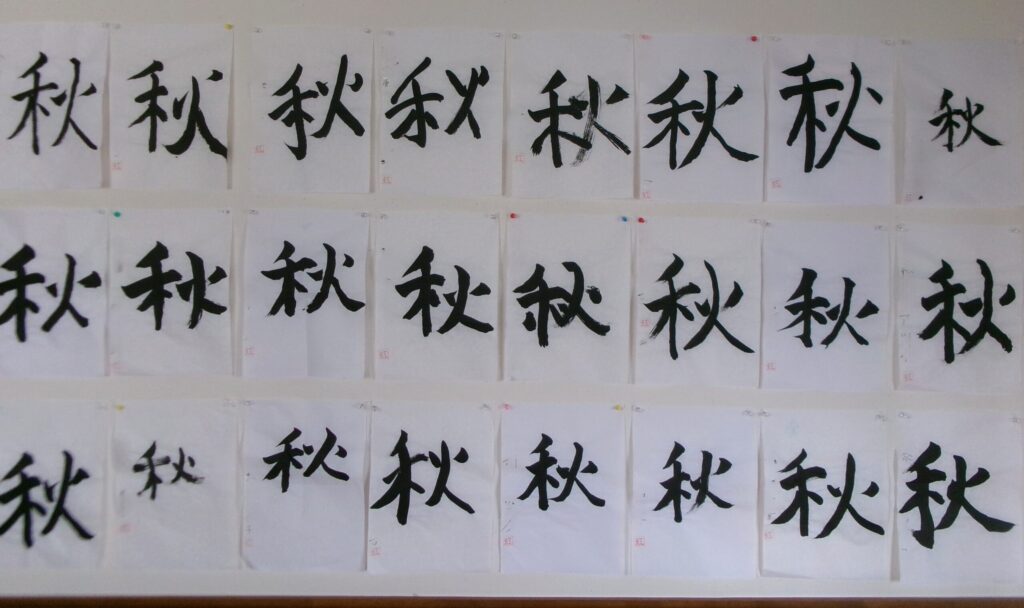 秋 秋 秋 秋 秋 秋 秋 秋
秋 秋 秋 秋 秋 秋 秋 秋
秋 秋 秋 秋 秋 秋 秋 秋